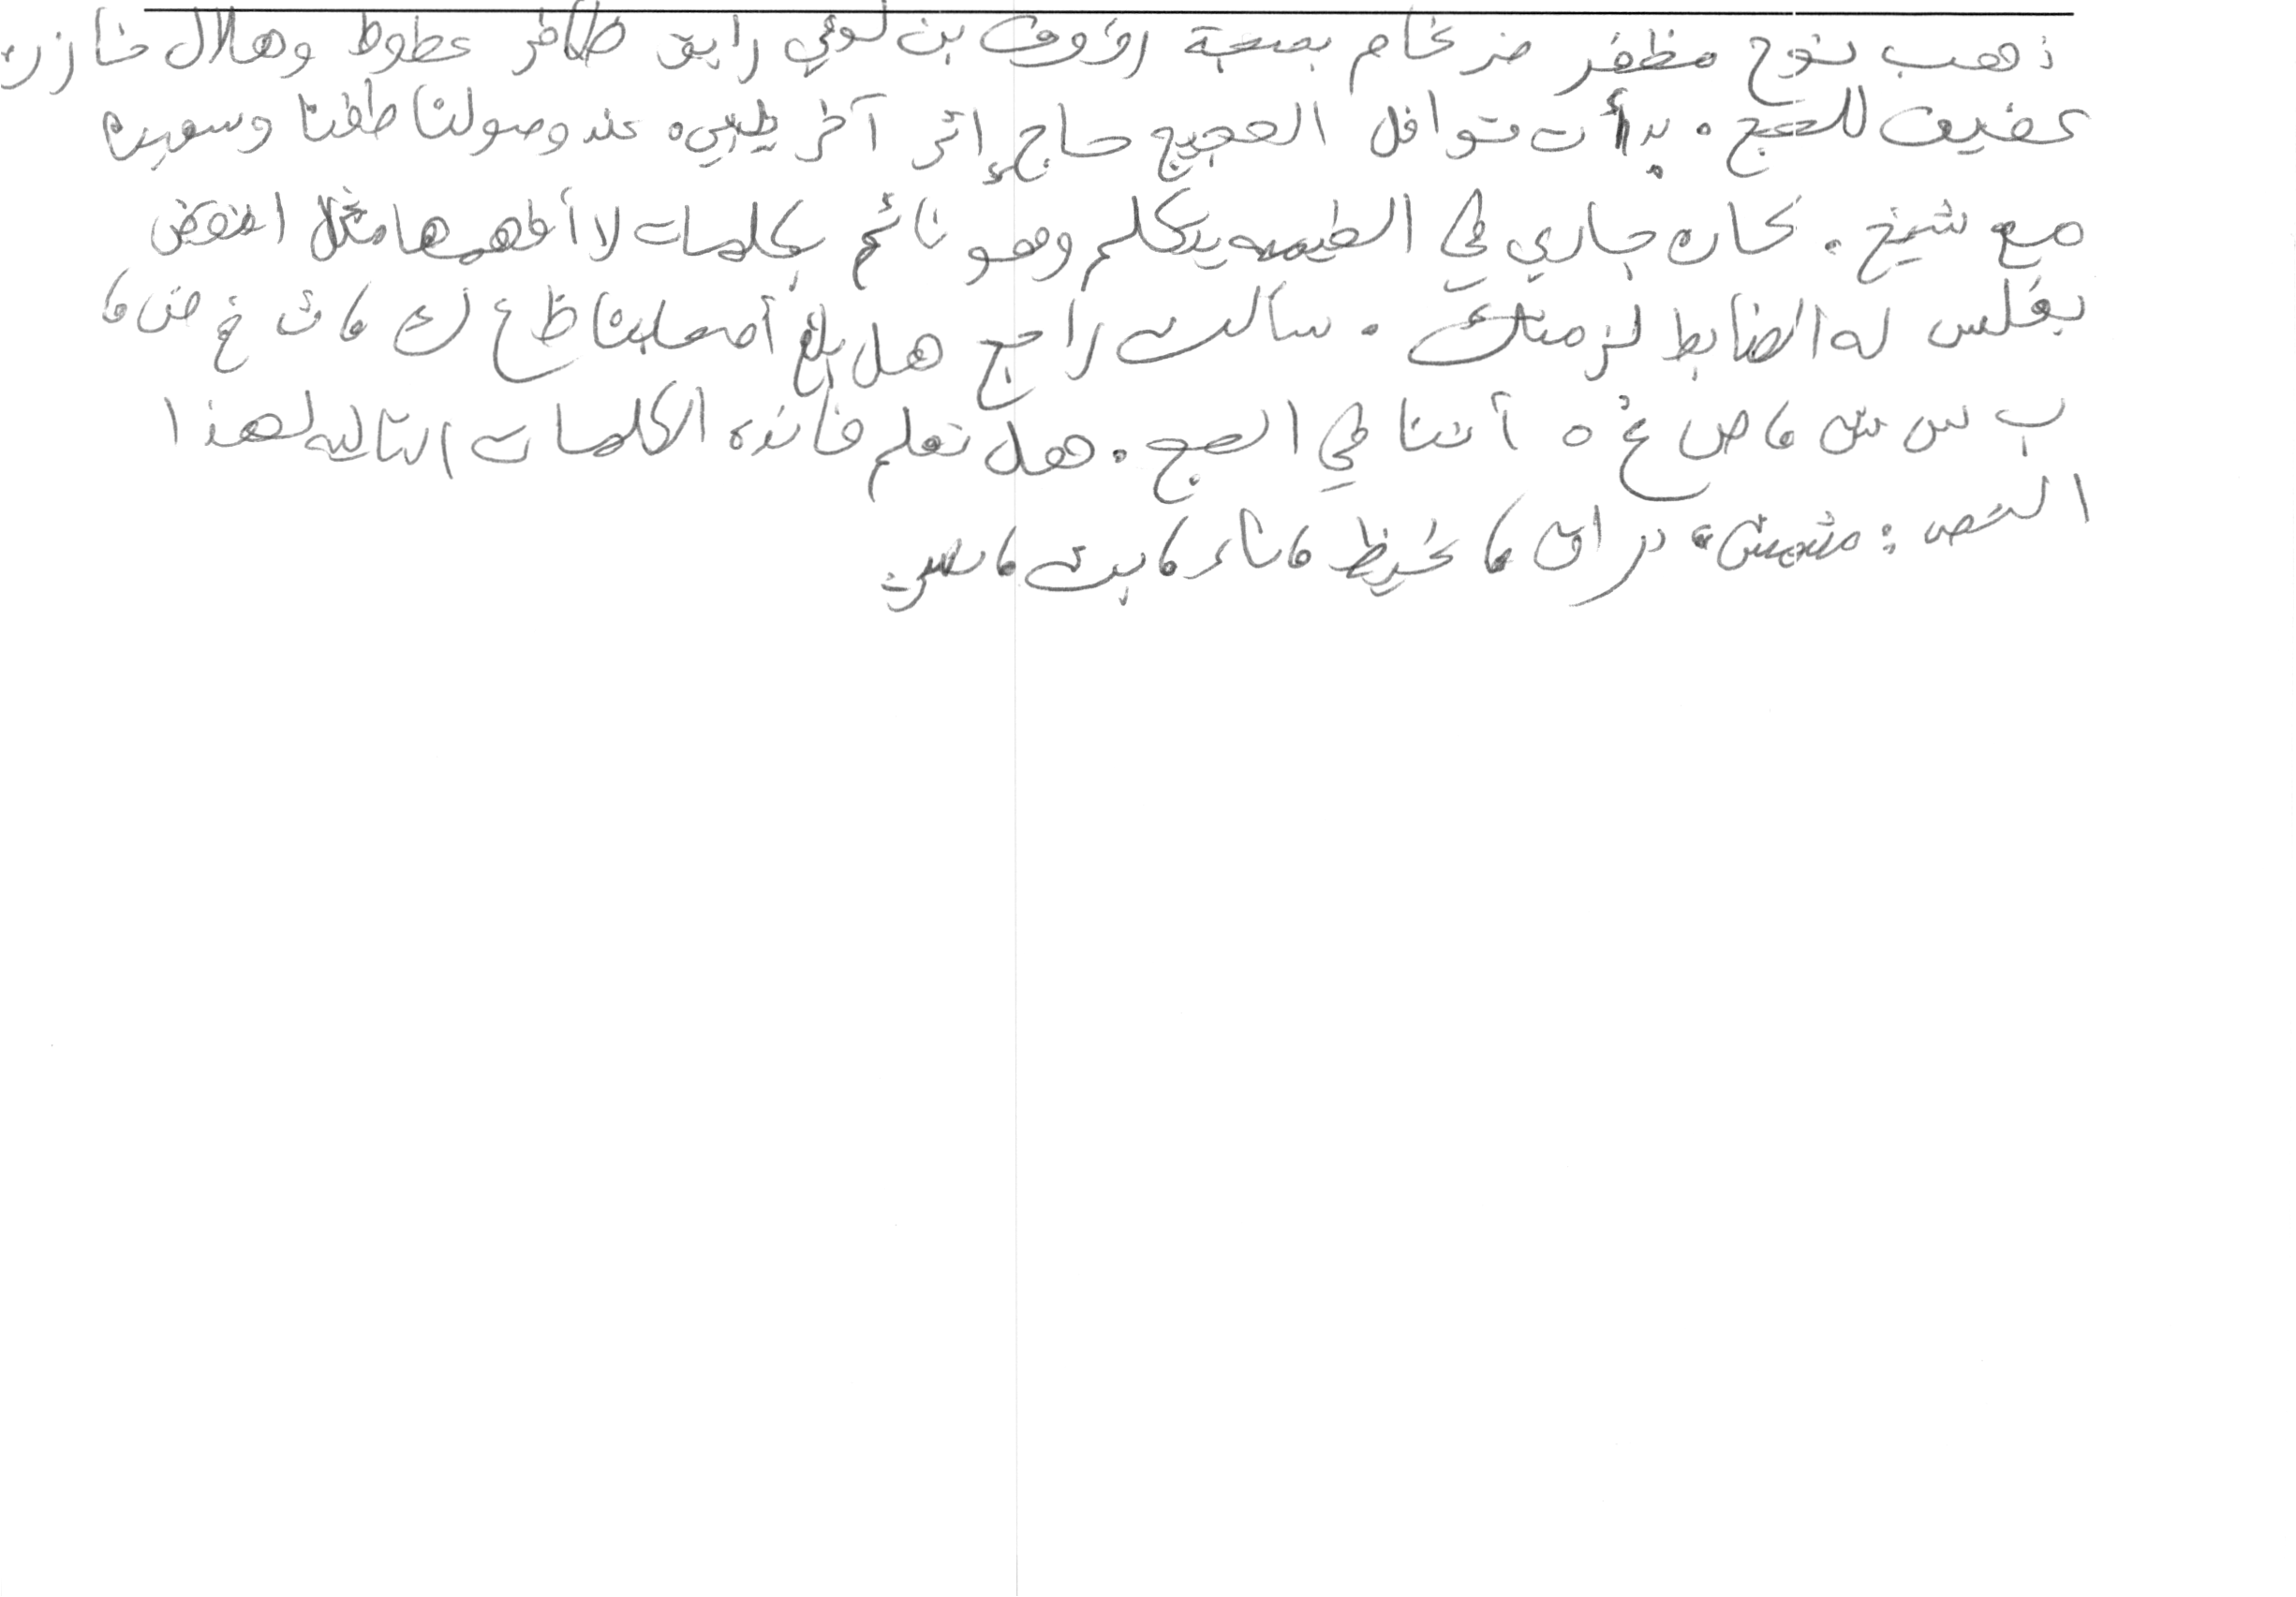 ذهب نوح مظفر ضرغام بصحبة رؤوف بن لؤي رايق ظافر عطوط وهلال خازن
عفيف للحج . بدأت قوافل الحجيج حاج إثر آخر يلبي، عند وصولنا طفنا وسعينا
مع شيخ . كان جاري في الخيمه يتكلم وهو نائم بكلمات لا أفهمها مثل انقض
يغلس له الضابط لزمتك . سألت راجح هل بلغ أصحابنا ظ ع ك ، ث غ ض ،
ب س ش ، ص غ ه أننا في الحج . هل تعلم فائدة الكلمات التاليه لهذا
النص : مشمش ، دراق ، غيظ ، شاء ، بت ،